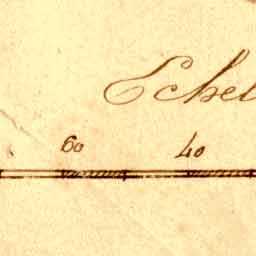 Echel
60 40